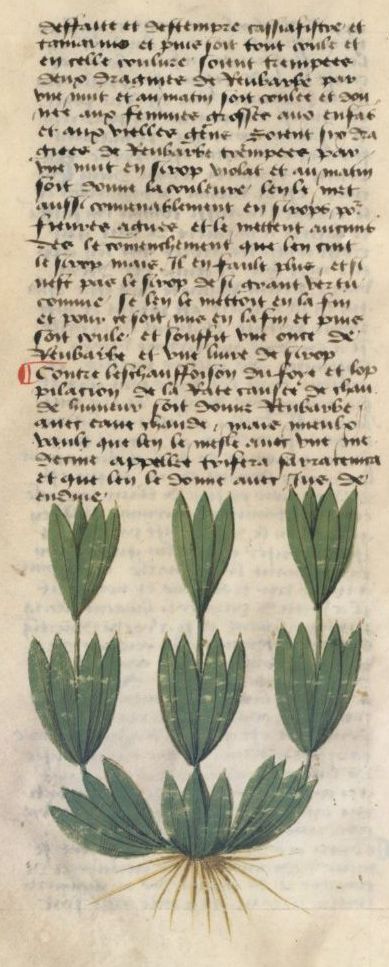 deffaite et destempre cassiafistre et
tamarins et puis soit tout coule et
en celle couleure soient trempees
deux dragmes de Reubarbe par
une nuit et au matin soit coulee et don
nee aux femmes grosses aux enfãs
et aux vielles gens Soient six dra
gmes de Reubarbe trempees par
une nuit en sirop violat et au matin
soit donne la couleure len le met
aussi convenablement en sirops por
fievres agues et le mettent aucuns
des le comenchement que len cuit
le sirop mais il en fault plus et si
nest pas le sirop de si grant vertu
comme se len le mettoit en la fin
et pour ce soit mis en la fin et puis
soit coule et souffit une once de
Reubarbe et une livre de sirop
Contre leschauffoison du foye et lop
pilacion de la Rate causee de chau
de humeur soit donne Reubarbe
avec eaue chaude mais mieulx
vault que len le mesle avec une me
decine appellee trifera sarracenica
et que len le donne avec Jus de
endivie